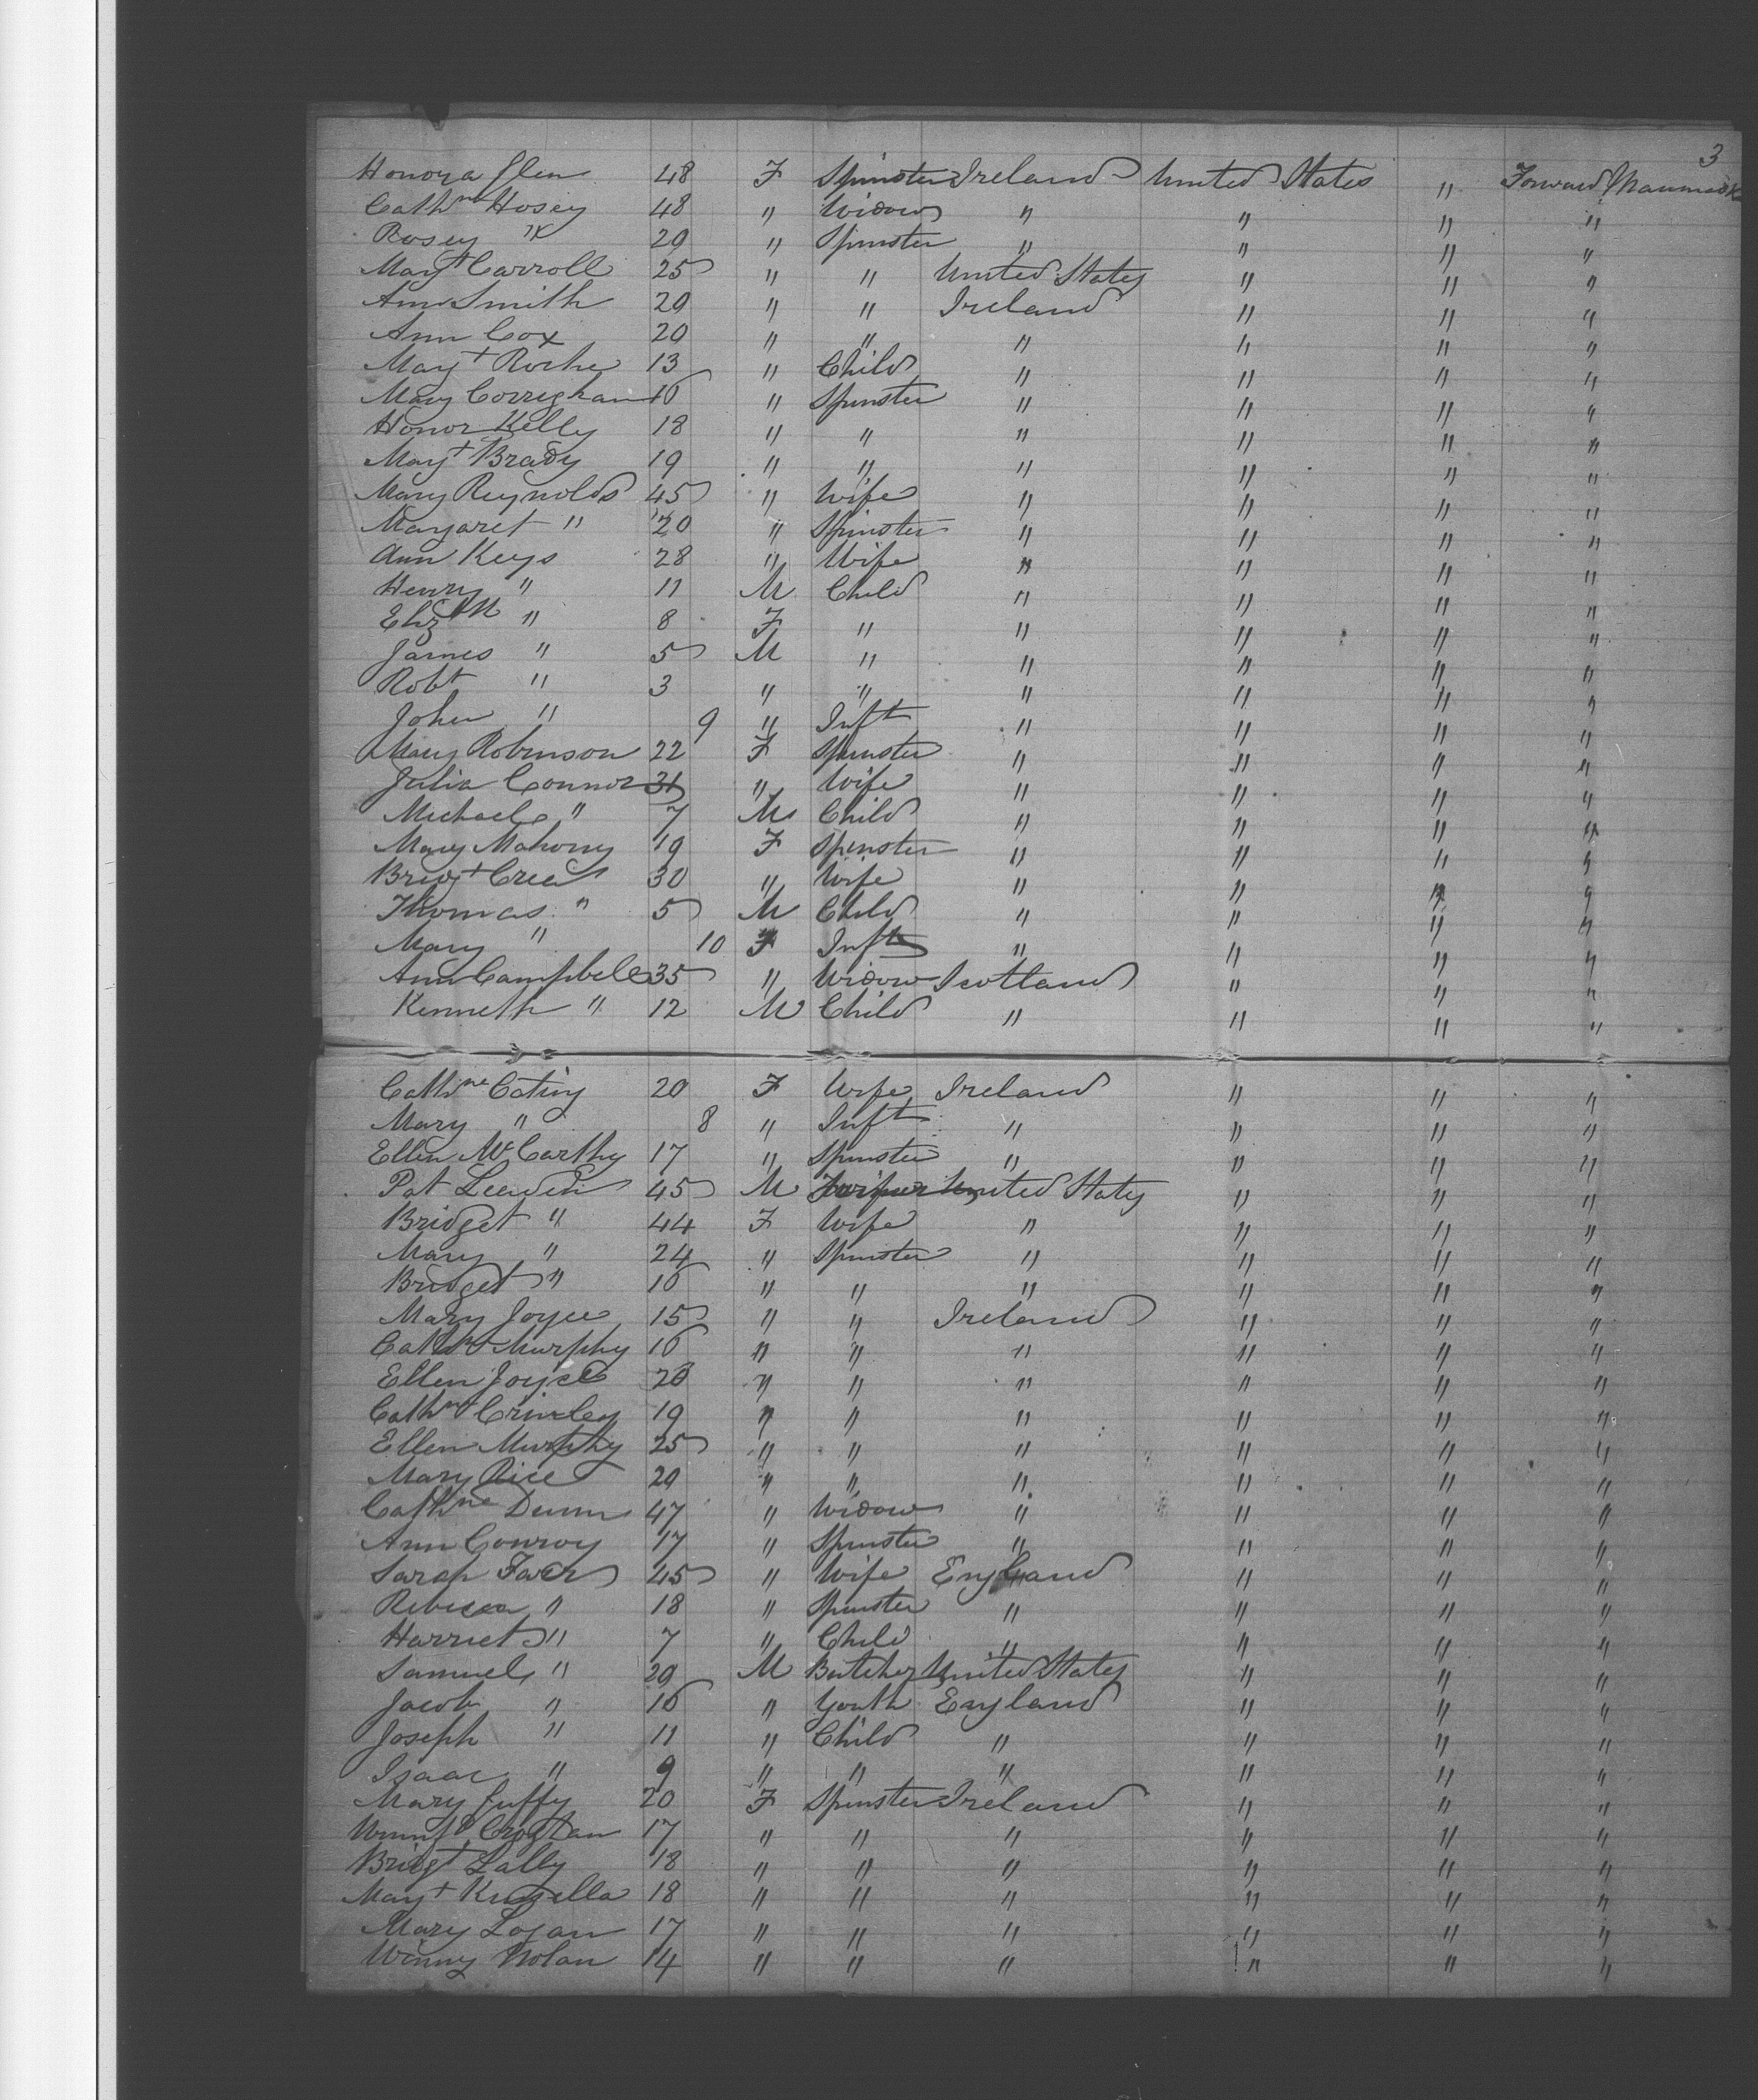 3
Honora Glen 48 F Spinster Ireland United States " Forward
Cathne Hosey 48 " Widow " " " "
Rosey " 20 " Spinster " " " "
Magt Carroll 25 " " United States " " "
Ann Smith 20 " " Ireland " " "
Ann Cox 20 " " " " " "
Magt Roche 13 " Child " " " "
Mary Corrighan 16 " Spinster " " " "
Honor Kelly 18 " " " " " "
Magt Brady 19 " " " " " "
Mary Reynolds 45 " Wife " " " "
Margaret " 20 " Spinster " " " "
Ann Keys 28 " Wife " " " "
Henry " 11 M Child " " " "
Elizth " 8 F " " " " "
James " 5 M " " " " "
Robt " 3 " " " " " "
John " 9 " Inft " " " "
Mary Robinson 22 F Spinster " " " "
Julia Connor 31 " Wife " " " "
Michael " 7 M Child " " " "
Mary Mahony 19 F Spinster " " " "
Bridgt Crea 30 " Wife " " " "
Thomas " 5 M Child " " " "
Mary " 10 F Inft " " " "
Ann Campbell 35 " Widow Scotland " " "
Kenneth " 12 M Child " " " "
Cathne 20 F Wife Ireland " " "
Mary " 8 " Inft " " " "
Ellen McCarthy 17 " Spinster " " " "
Pat 45 M United States " " "
Bridget " 44 F Wife " " " "
Mary " 24 " Spinster " " " "
Bridget " 16 " " " " " "
Mary Joyce 15 " " Ireland " " "
Cathne Murphy 16 " " " " " "
Ellen Joyce " " " " " "
Cathne 19 " " " " " "
Ellen Murphy 25 " " " " " "
Mary Rice 20 " " " " " "
Cathne Dunn 47 " Widow " " " "
Ann Conroy 17 " Spinster " " " "
Sarah 45 " Wife England " " "
Rebecca " 18 " Spinster " " " "
Harriet " 7 " Child " " " "
Samuel " 20 M Butcher United States " " "
Jacob " 16 " Youth England " " "
Joseph " 11 " Child " " " "
Isaac " 9 " " " " " "
Mary Guffy 20 F Spinster Ireland " " "
17 " " " " " "
Bridgt Lally 18 " " " " " "
Magt Kinsella 18 " " " " " "
Mary Logan 17 " " " " " "
Winny Nolan 14 " " " " " "